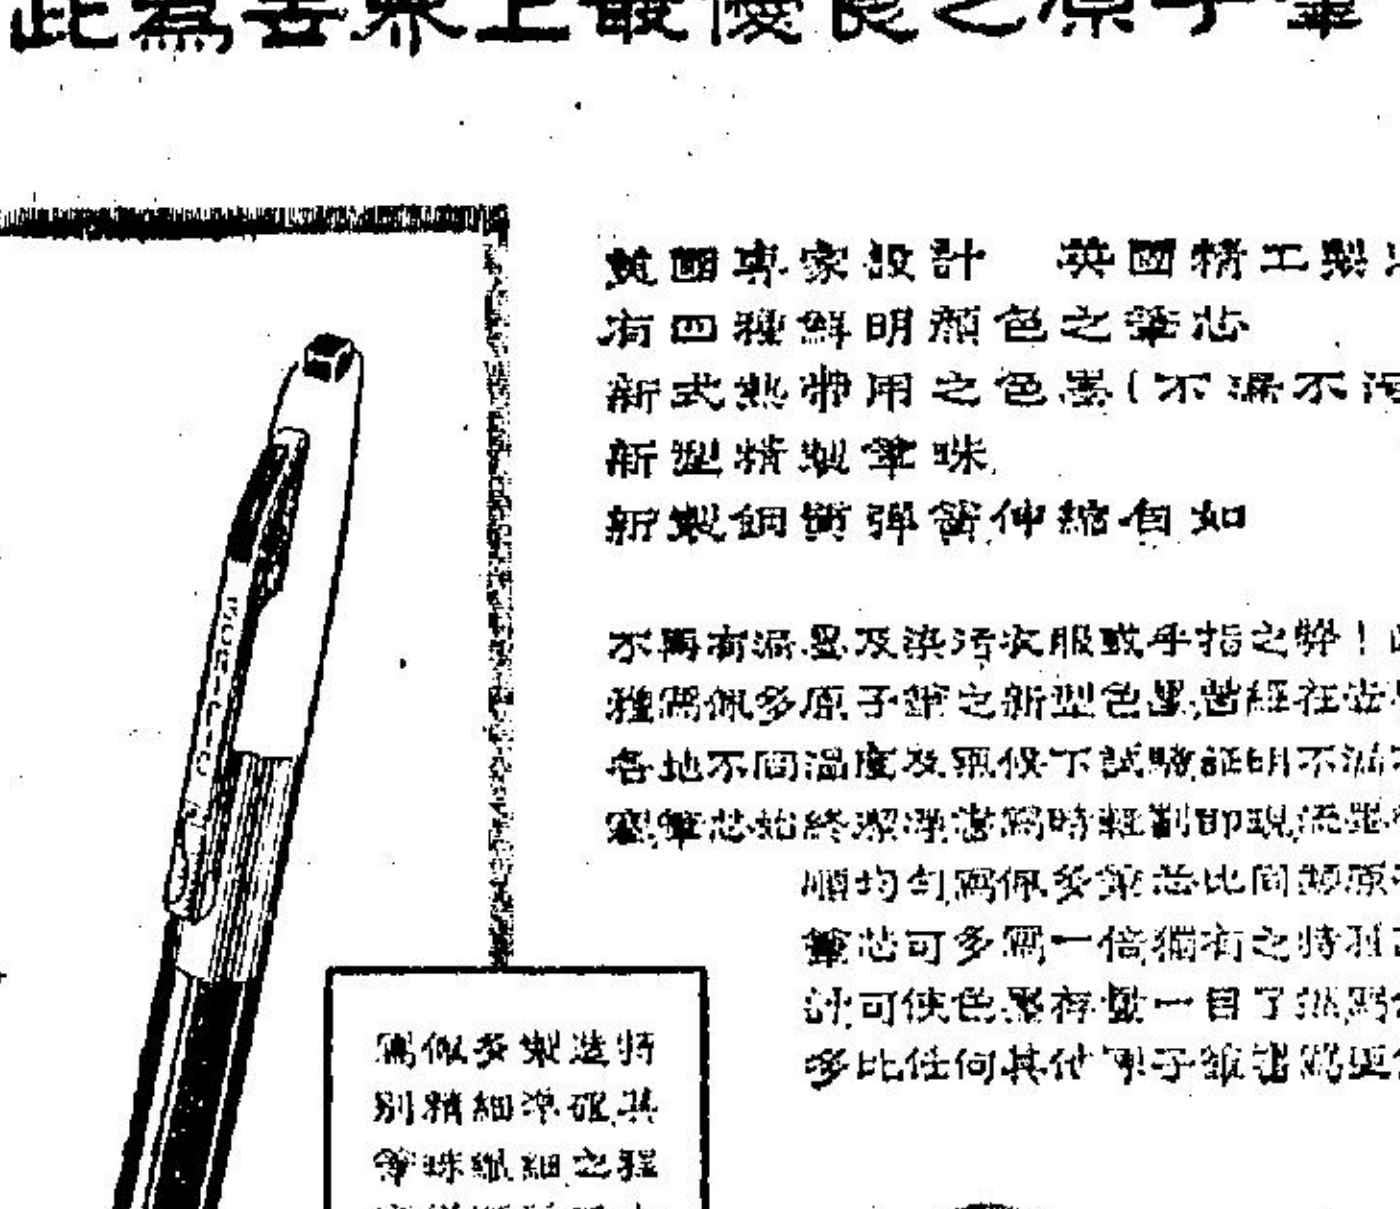 此為世界上最優良之原子筆
英國專家設計　英國精工製造
有四種鮮明顏色之筆芯
新式熱帶用之色墨(不漏不污
新型精製筆珠
新製鋼質彈簧伸縮自如
不再有漏墨及染污衣服或手指之弊！
種寫佩多原子筆之新型色墨曾經在世界
各地不同溫度及氣候下試驗証明不漏不
筆芯始終潔淨書寫時輕劃即現
順均勻寫佩多筆芯比同類原子
筆芯可多寫一倍獨有之特種設
計可使色墨存量一目了然寫佩
多比任何其他原子筆書寫更
寫佩多製造特
別精細準確其
筆珠纖細之程